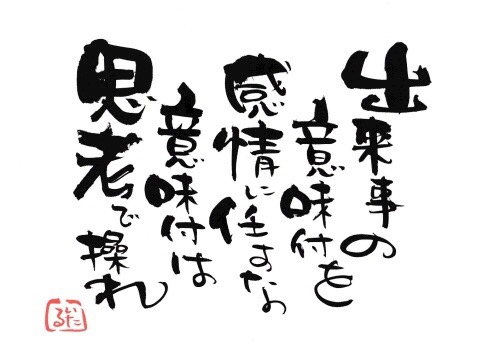 出来事の
意味付を
感情に任すな
意味付は
思考で操れ
いたる